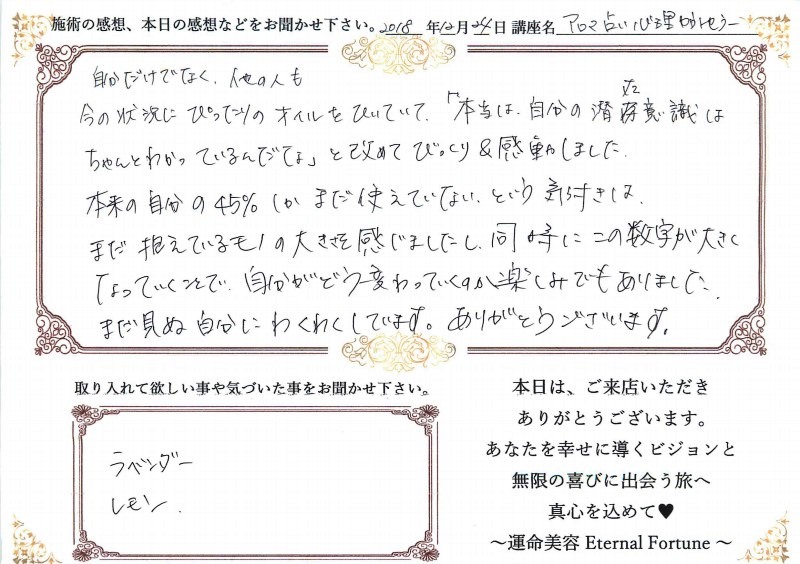 施術の感想、本日の感想などをお聞かせ下さい。2018 年12月24日 講座名 アロマ占い心理
自分だけでなく、他の人も
今の状況にぴったりのオイルをひいていて、「本当は、自分の潜在意識は
ちゃんとわかっているんだな」と改めてびっくり&感動しました。
本来の自分の45%しかまだ使えていない、という気付きは、
まだ抱えているモノの大きさを感じましたし、同時にこの数字が大きく
なっていくことで、自分がどう変わっていくのか楽しみでもありました。
まだ見ぬ自分にわくわくしています。ありがとうございます。
取り入れて欲しい事や気づいた事をお聞かせ下さい。
ラベンダー
レモン.
本日は、ご来店いただき
ありがとうございます。
あなたを幸せに導くビジョンと
無限の喜びに出会う旅へ
真心を込めて♥
～運命美容 Eternal Fortune ～